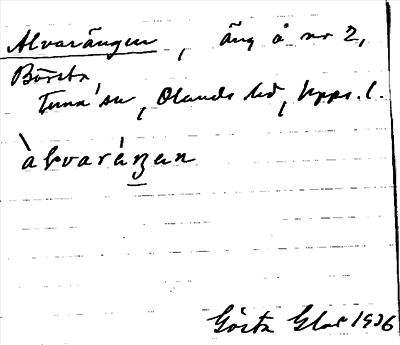 Alvarängen, äng å nr 2,
Börsta,
Tuna sn, Olands hd, Upps. l.
àlvaráŋen
Gösta Glas 1936